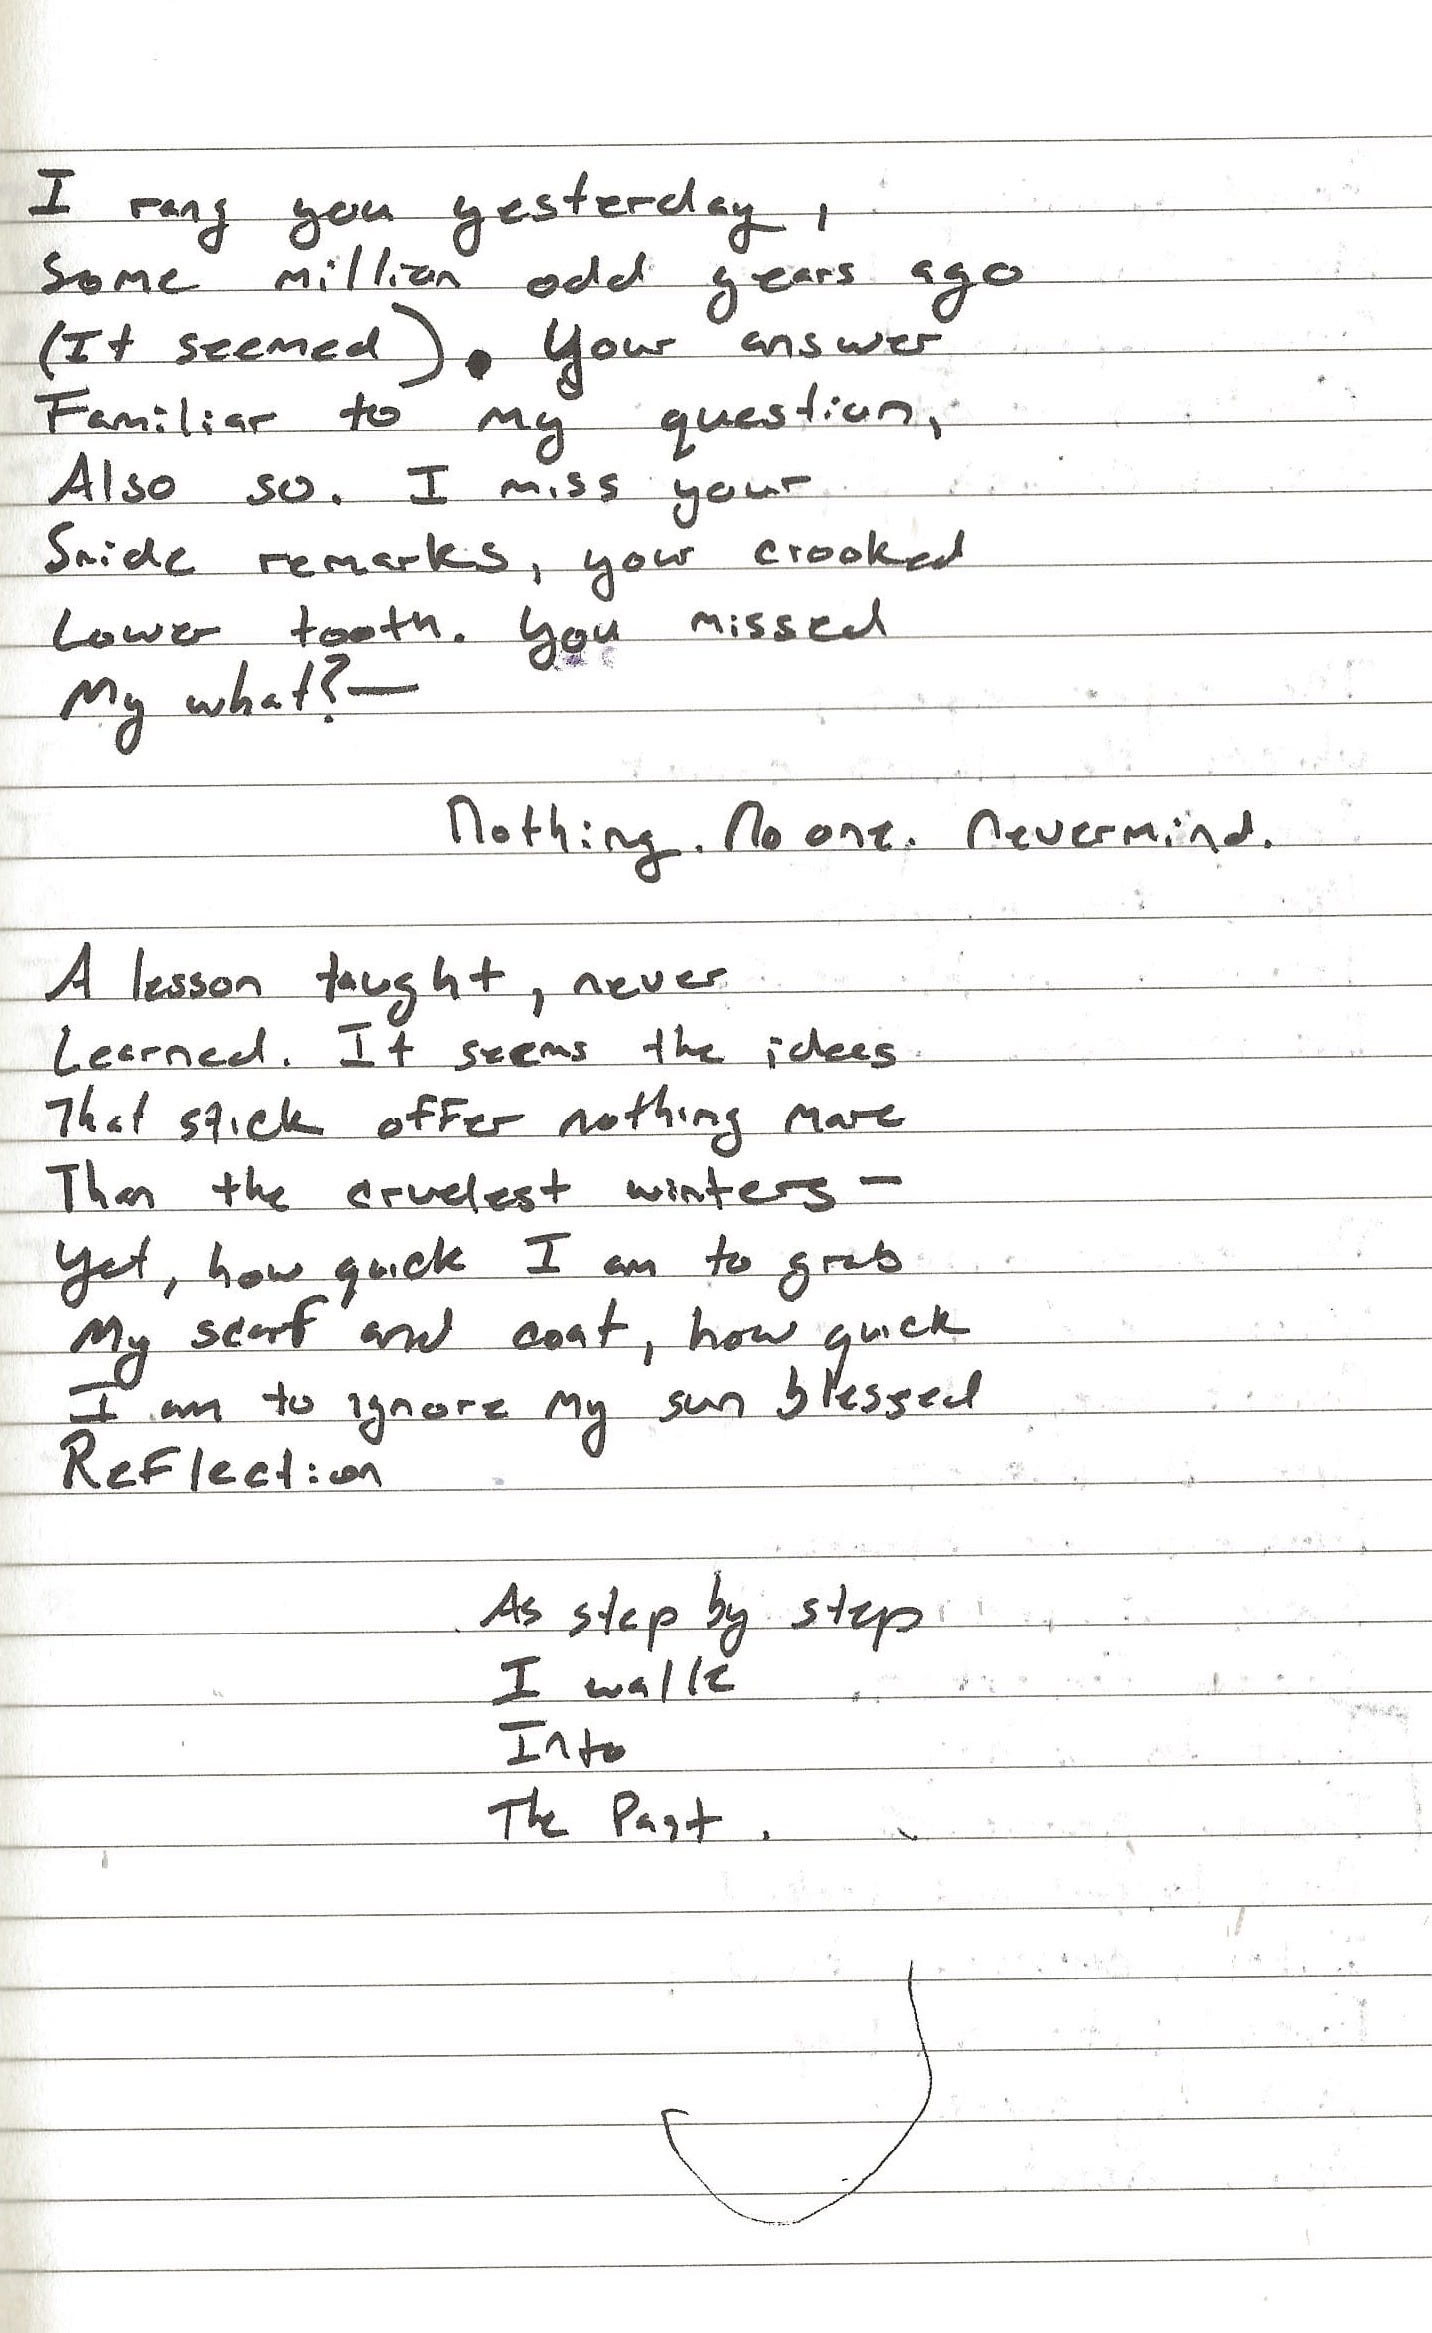 I rang you yesterday,
Some million odd years ago
(It seemed). Your answer
Familiar to my question,
Also so. I miss your
Snide remarks, your crooked
Lower tooth. You missed
My what?—
Nothing. No one. Nevermind.
A lesson taught, never
Learned. It seems the ideas
That stick offer nothing more
Than the cruelest winters—
Yet, how quick I am to grab
My scarf and coat, how quick
I am to ignore my sun blessed
Reflection
As step by step
I walk
Into
The Past.